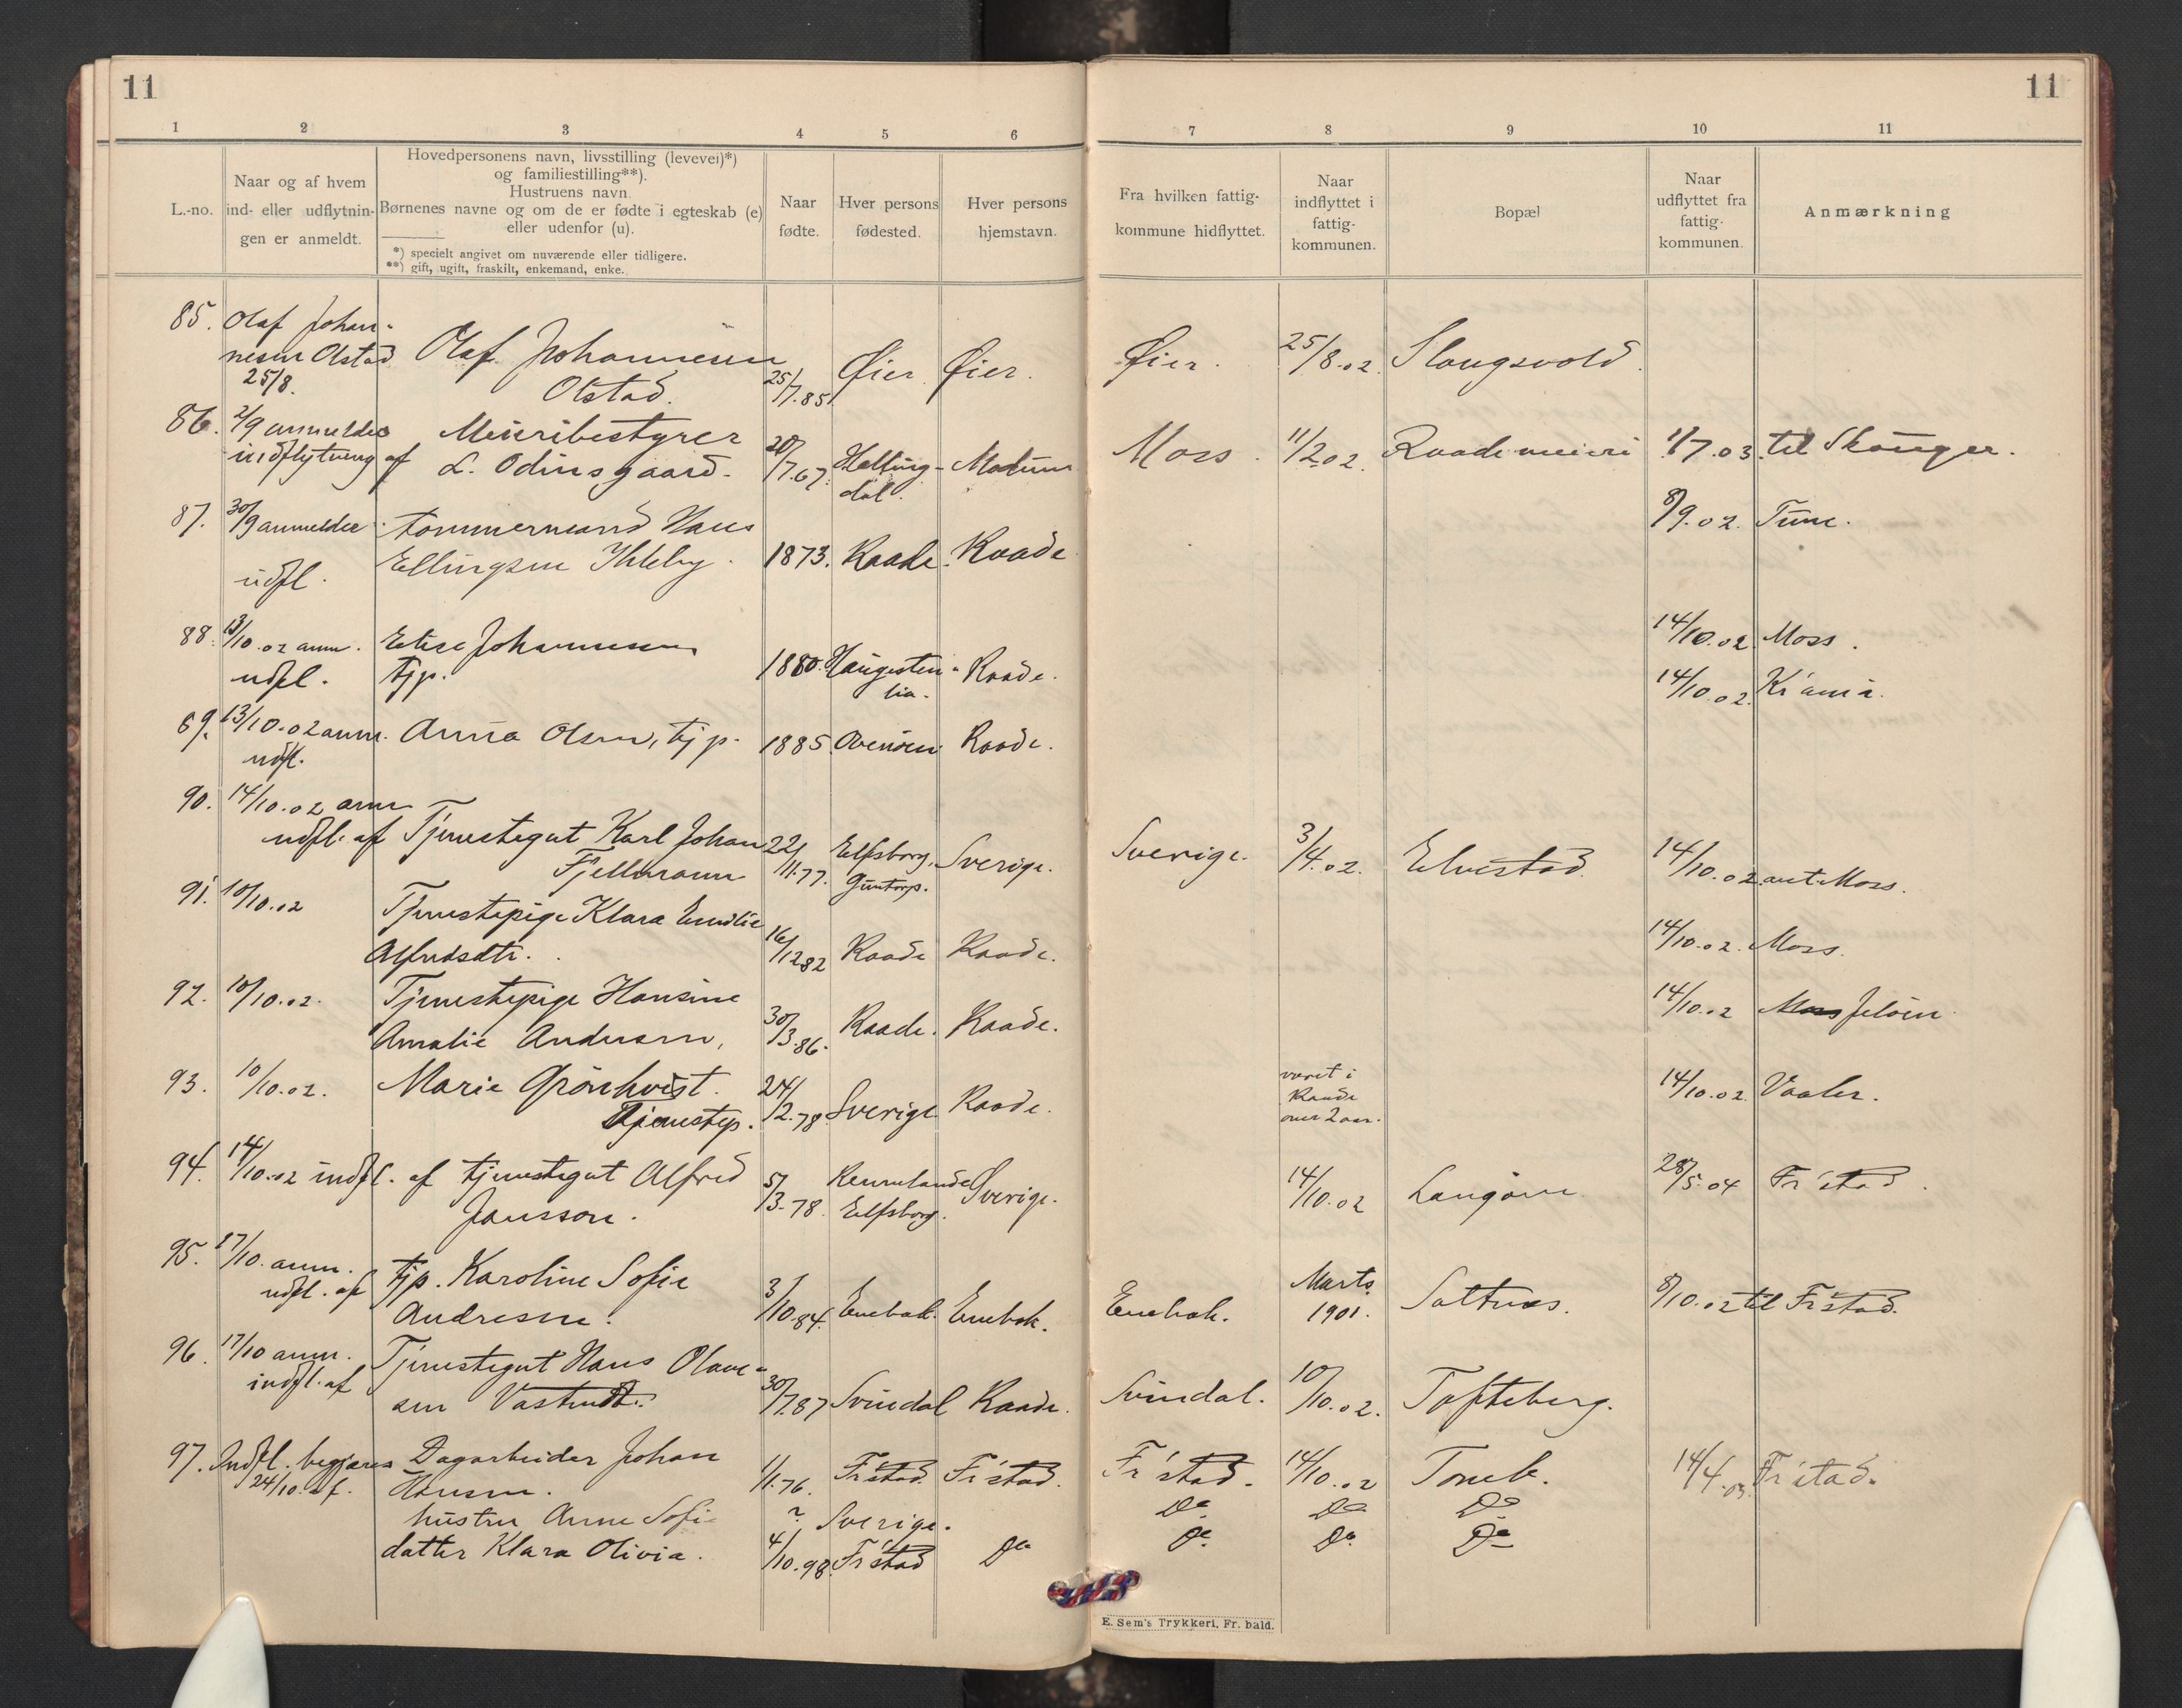 11
11
1 2 3 4 5 6 7 8 9 10 11
L.-no.
Naar og af hvem
ind- eller udflytnin-
gen er anmeldt.
Hovedpersonens navn, livsstilling (levevei)*)
og familiestilling**).
Hustruens navn.
Børnenes navne og om de er fødte i egteskab (e)
eller udenfor (u).
*) specielt angivet om nuværende eller tidligere.
**) gift, ugift, fraskilt, enkemand, enke.
Naar
fødte.
Hver persons
fødested.
Hver persons
hjemstavn.
Fra hvilken fattig-
kommune hidflyttet.
Naar
indflyttet i
fattig-
kommunen.
Bopæl
Naar
udflyttet fra
fattig-
kommunen.
Anmærkning
85. Olaf Johan-
nesen Olstad Olaf Johannesen Øier Øier. Øier. 25/8.02. Slangsvold.
25/8. Olstad. 25/7.85
86. 2/9 anmeldes Meieribestyrer
indflytning af L. Odinsgaard. 20/7.67. Halling- Modum Moss. 11/2.02. Raade meieri 1/7.03. til Skouger.
dal.
87. 30/9 anmeldes tømmermand Hans 8/9.02. Tune.
udfl. Ellingsen Ihleby. 1873. Raade. Raade
88. 13/10.02 anm. Elise Johannessen 14/10.02 Moss.
udfl. tjp. 1880. Haugesten- Raade.
lia.
89. 13/10.02 anm. Anna Olsen, tjp. 1885. Ovenøen Raade. 14/10.02. Kr'ania.
udfl.
90. 14/10.02 anm
udfl. af Tjenestegut Karl Johan 22/11.77. Elfsborg, Sverige. Sverige. 3/4.02. Elvestad. 14/10.02 ant. Moss.
Fjellmann Guntorp.
91. 10/10.02 Tjenestepige Klara Emilie
Alfredsdtr. 16/12.82 Raade Raade. 14/10.02. Moss.
92. 10/10.02. Tjenestepige Hansine
Amalie Andersen, 30/3.86. Raade. Raade. 14/10.02 Moss Jeløen
93. 10/10.02. Marie Grönkvist. 24/2.78. Sverige Raade. været i 14/10.02 Vaaler.
Tjenestep. Raade
over 2 aar.
94. 14/10.02 indfl. af tjenestegut Alfred 5/3.78. Sverige. 14/10.02 Langøen 28/5.04 Fr'stad.
Jansson. Elfsborg.
95. 17/10. anm. tjp. Karoline Sofie Marts
udfl. af Andresen. 3/10.84. Enebak. Enebak. Enebak. 1901. Saltnes. 8/10.02 til Fr'stad.
96. 17/10 anm. Tjenestegut Hans Olave-
indfl. af sen 30/7.87 Svindal Raade. Svindal. 10/10.02. Tofteberg.
97. Indfl. begjæres Dagarbeider Johan 1/1.76. Fr'stad. Fr'stad. Fr'stad. 14/10.02 Tomb. 14/4.03. Fr'stad.
24/10. af. Hansen.
hustru Anne Sofie ? Sverige. Do Do Do
datter Klara Olivia. 4/10.98. Fr'stad Do Do Do Do
E. Sem's Trykkeri, Fr. hald.